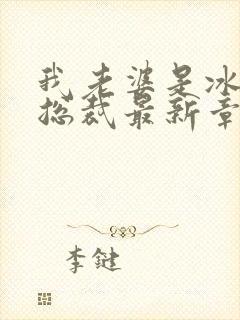 我老婆是冰
总裁最新章
李键